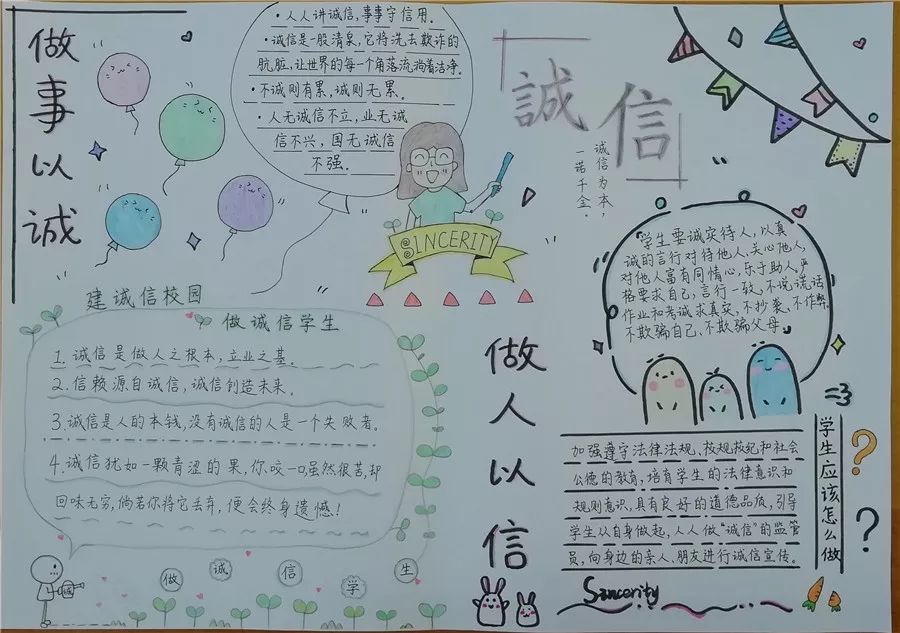 做事以诚
·人人讲诚信,事事守信用。
·诚信是一股清泉,它将洗去欺诈的
肮脏,让世界的每一个角落流淌着洁净。
·不诚则有累,诚则无累。
·人无诚信不立,业无诚
信不兴,国无诚信
不强。
SINCERITY
誠信
诚信为本,
一诺千金。
“学生要诚实待人,以真
诚的言行对待他人、关心他人,
对他人富有同情心,乐于助人。严
格要求自己,言行一致,不说谎话,
作业和考试求真实,不抄袭、不作弊,
不欺骗自己、不欺骗父母。”
建诚信校园
做诚信学生
1. 诚信是做人之根本,立业之基。
2. 信赖源自诚信,诚信创造未来。
3. 诚信是人的本钱,没有诚信的人是一个失败者。
4. 诚信犹如一颗青涩的果,你咬一口虽然很苦,却
回味无穷,倘若你将它丢弃,便会终身遗憾!
做诚信学生
做人以信
学生应该怎么做
??
加强遵守法律法规、校规校纪和社会
公德的教育,培育学生的法律意识和
规则意识,具有良好的道德品质,引导
学生从自身做起,人人做“诚信”的监管
员,向身边的亲人、朋友进行诚信宣传。
Sancerity